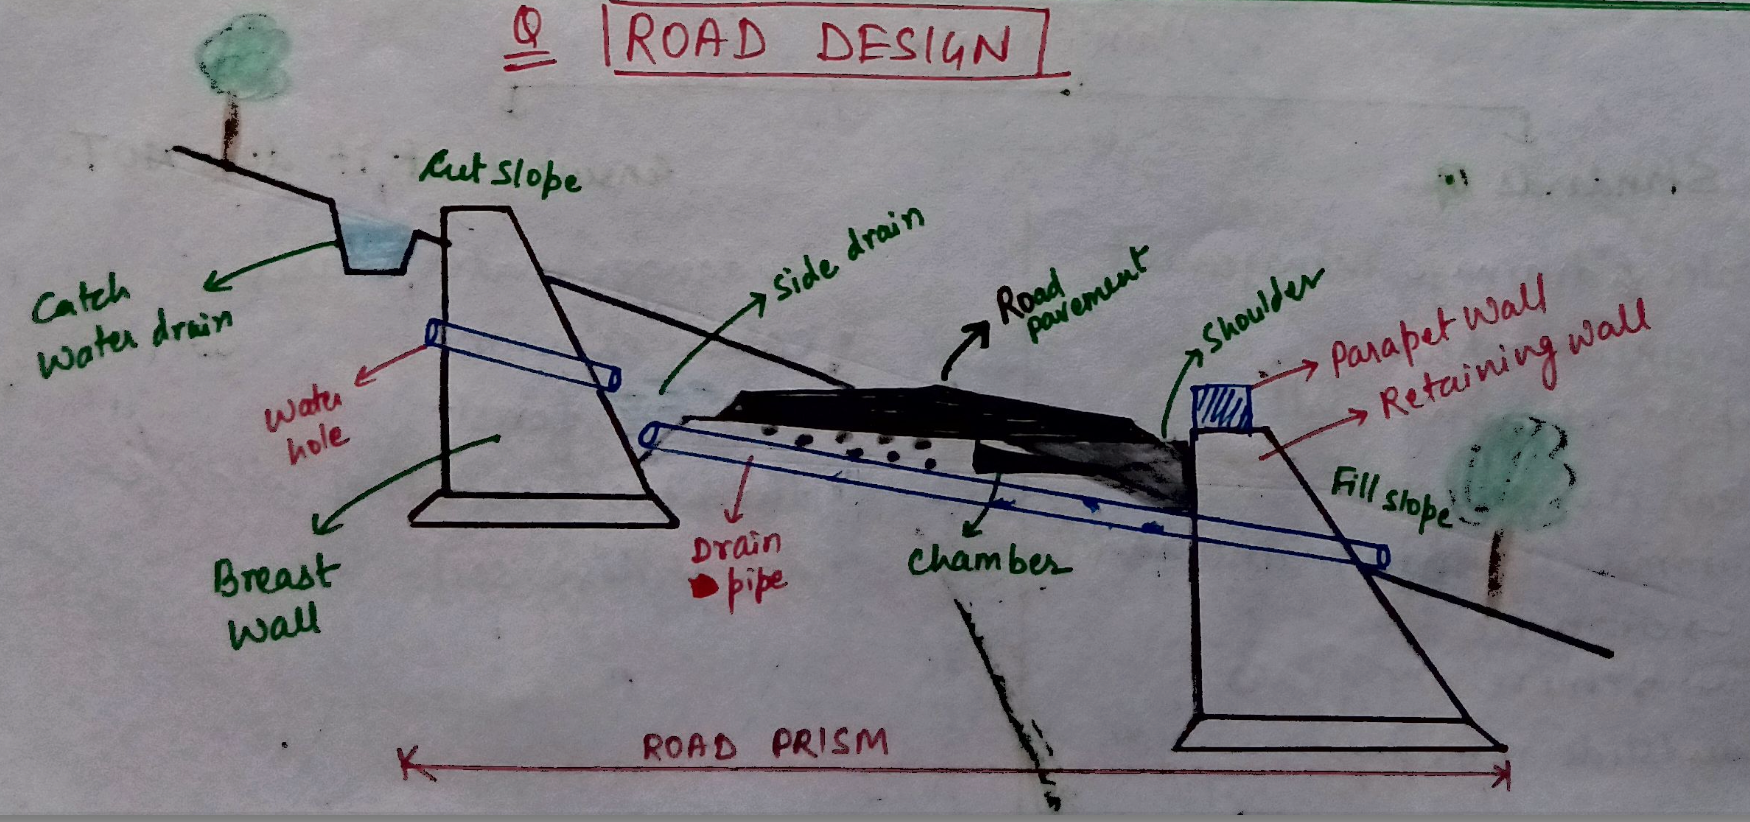 Q ROAD DESIGN
Cut slope
Catch
water drain
Side drain
Road
pavement
Shoulder
Parapet wall
Retaining wall
water
hole
Fill slope
Breast
wall
Drain
pipe
Chamber
ROAD PRISM